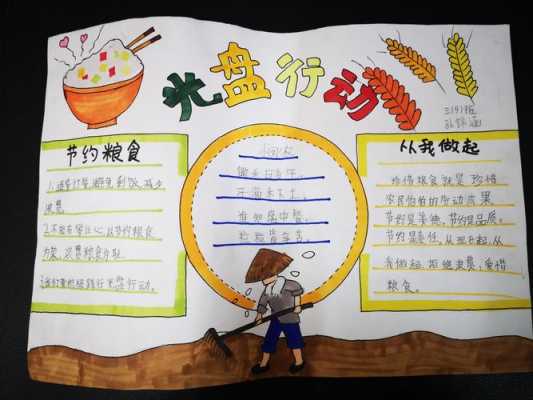 光盘行动
三(9)班
节约粮食
1.适量打餐,避免剩饭,减少
浪费
2.不攀比
节约粮食
为荣,浪费粮食为耻。
3.我们要积极践行光盘行动。
悯农
锄禾日当午,
汗滴禾下土。
谁知盘中餐,
粒粒皆辛苦。
从我做起
珍惜粮食就是珍惜
农民伯伯的劳动成果。
节约是美德,节约是品质,
节约是责任。从现在起,从
我做起,拒绝浪费,爱惜
粮食。